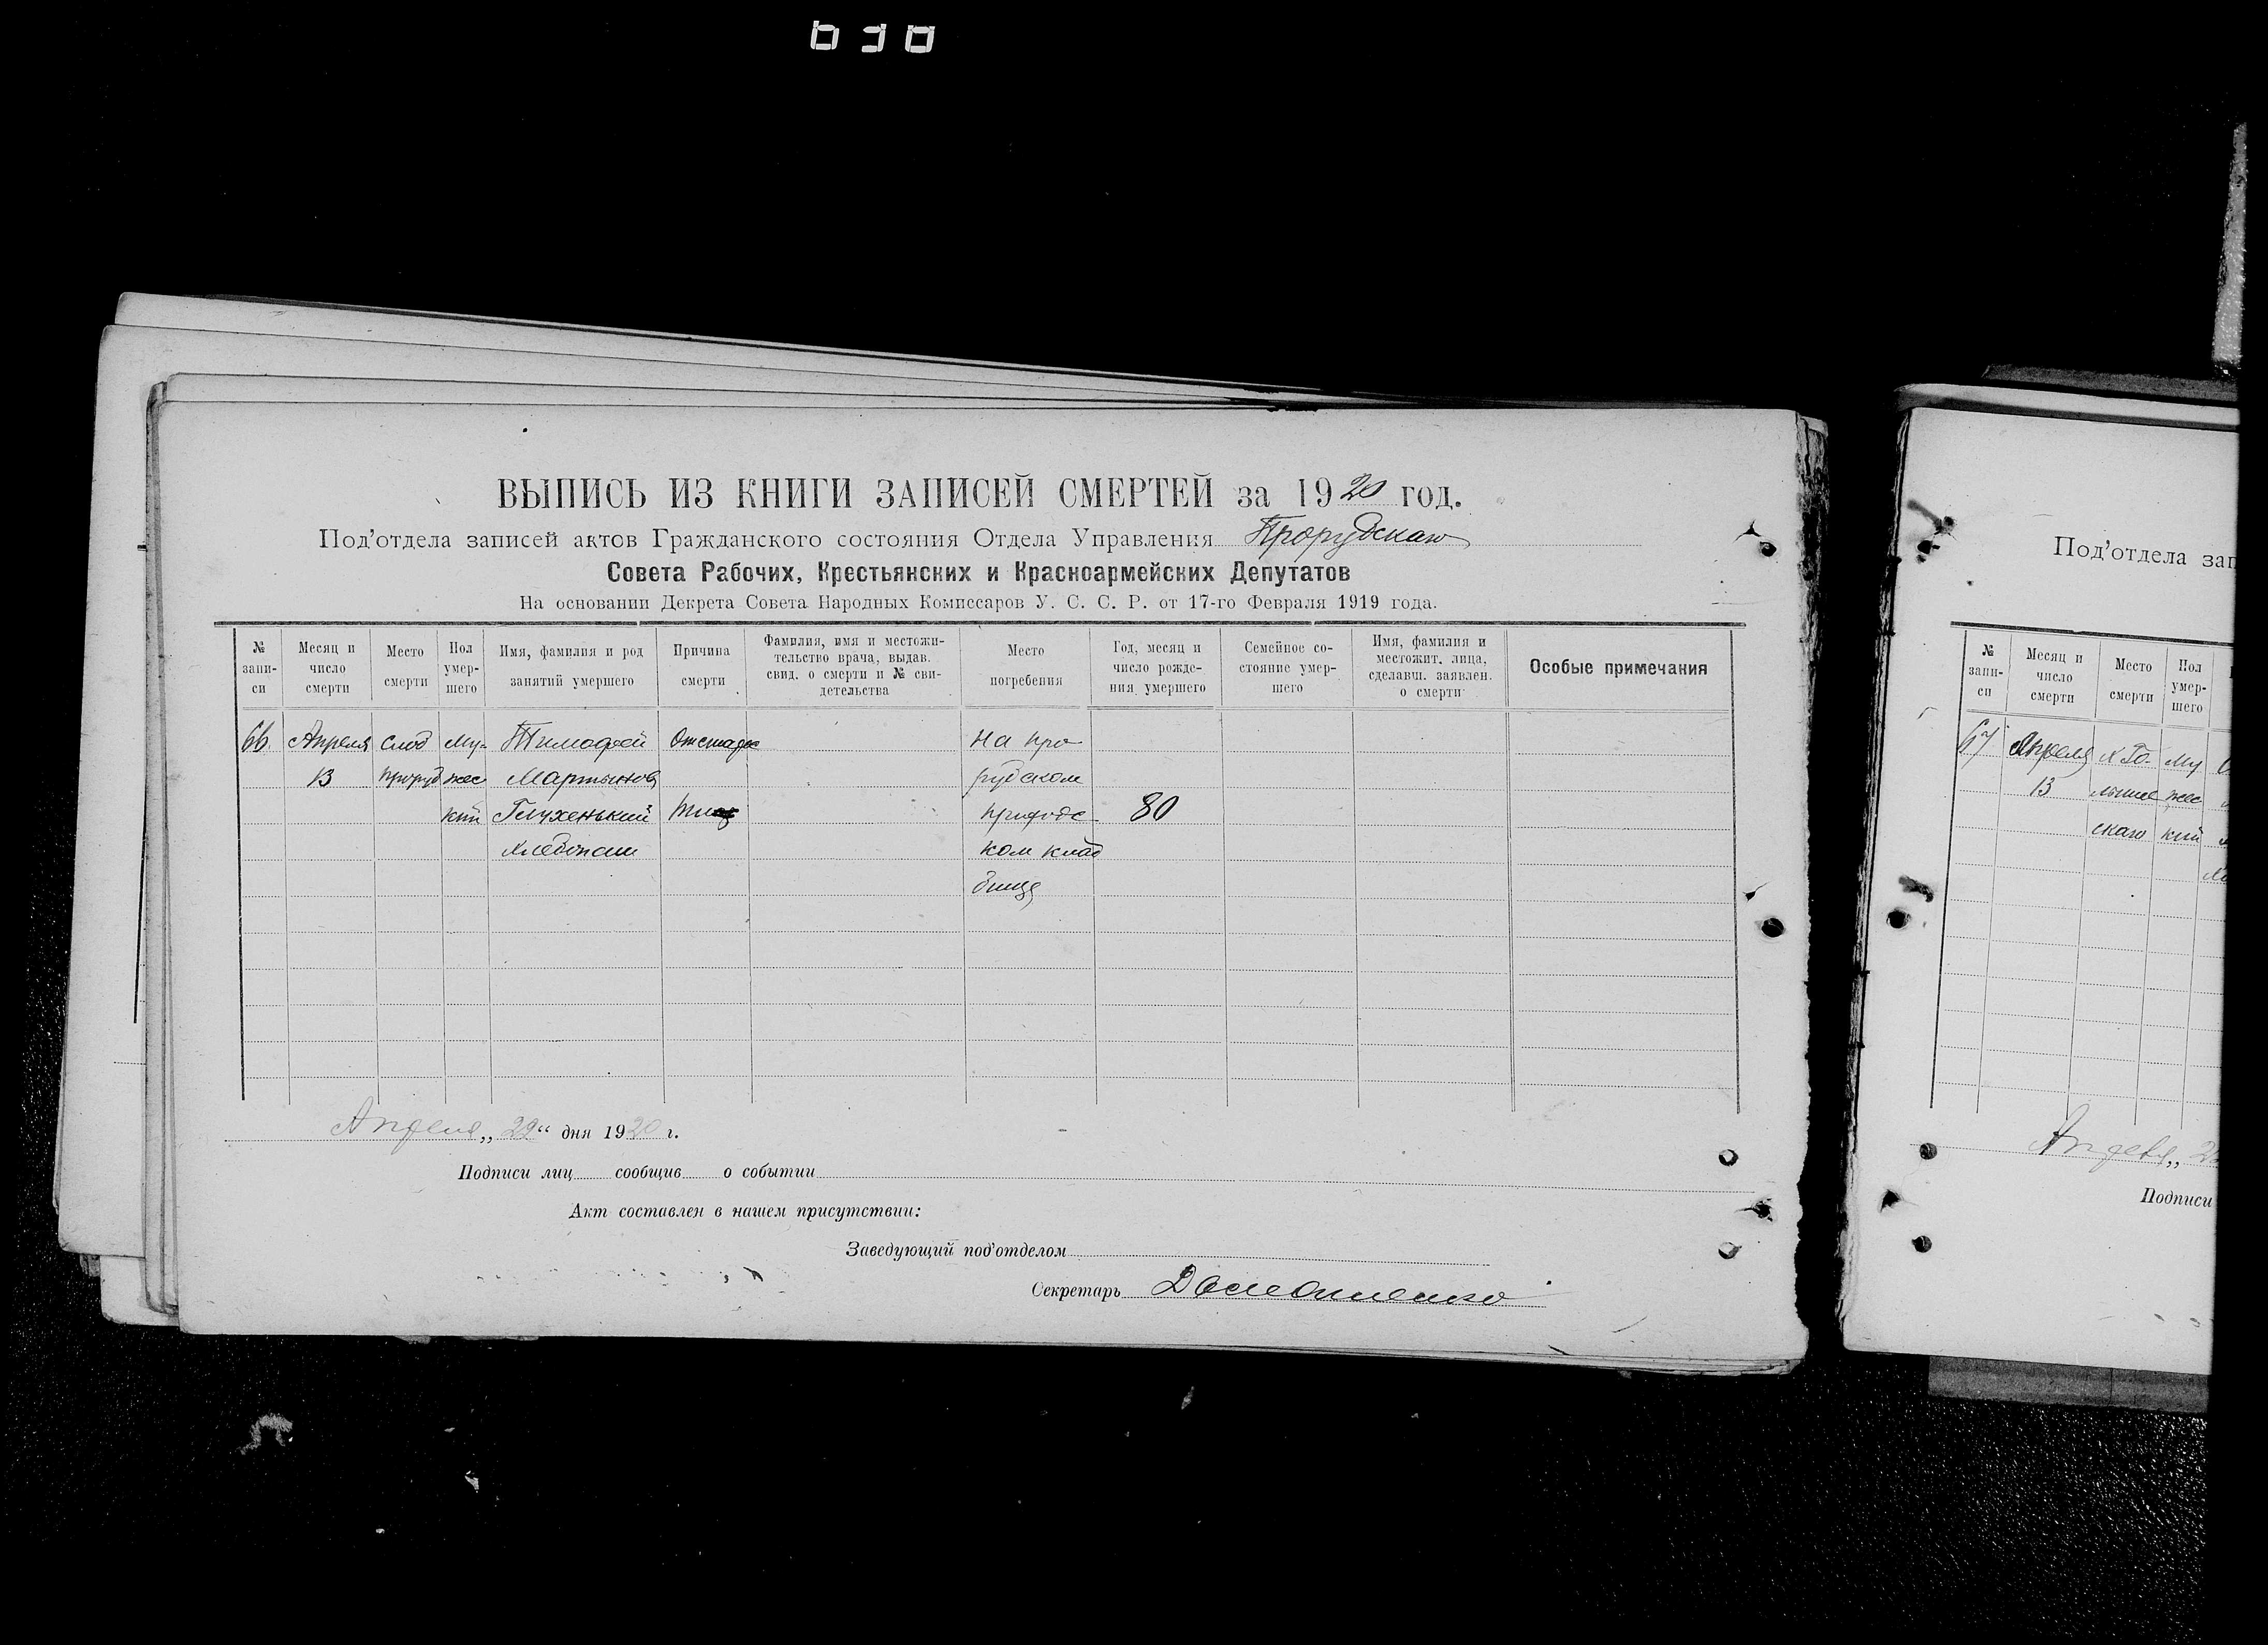 ВЫПИСЬ ИЗ КНИГИ ЗАПИСЕЙ СМЕРТЕЙ за 1920 год.
Под'отдела записей актов Гражданского состояния Отдела Управления Прорубскаго
Совета Рабочих, Крестьянских и Красноармейских Депутатов
На основании Декрета Совета Народных Комиссаров У. С. С. Р. от 17-го Февраля 1919 года.
№ запи-
си
Месяц и
число
смерти
Место
смерти
Пол
умер-
шего
Имя, фамилия и род
занятий умершего
Причина
смерти
Фамилия, имя и местожи-
тельство врача, выдав.
свид. о смерти и № сви-
детельства
Место
погребения
Год, месяц и
число рожде-
ния умершего
Семейное со-
стояние умер-
шего
Имя, фамилия и
местожит. лица,
сделавш. заявлен.
о смерти
Особые примечания
66. Апреля Слоб Му- Тимофей От старос на про
13 Проруб жес Мартынов рубском
кий Глухенький приходс 80
хлебопаш ком клад
бище
Апреля „29“ дня 1920 г.
Подписи лиц сообщив о событии
Акт составлен в нашем присутствии:
Заведующий под'отделом
Секретарь
Под'отдела зап
№
запи-
си
Месяц и
число
смерти
Место
смерти
Пол
умер-
шего
67 Апреля Му
13 жес
скаго кий
Апреля „2
Подписи